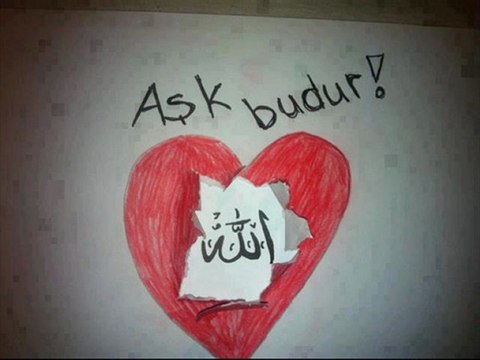 Aşk budur!
الله